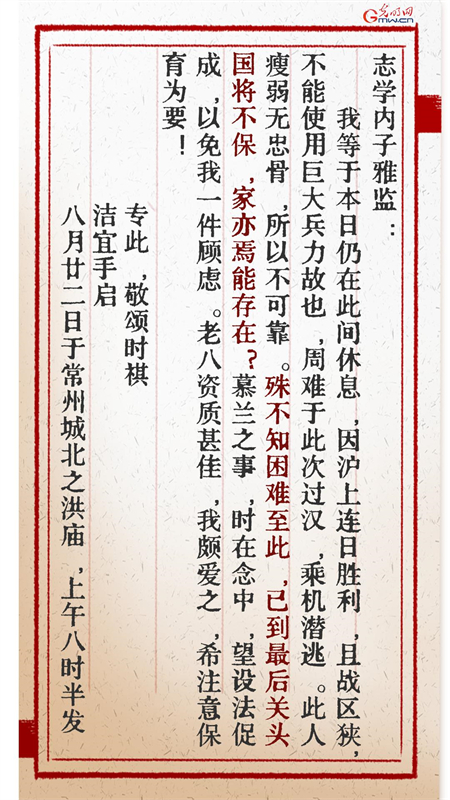 光明网
GMW.CN
志学内子雅监：
我等于本日仍在此间休息，因沪上连日胜利，且战区狭，
不能使用巨大兵力故也，周难于此次过汉，乘机潜逃。此人
瘦弱无忠骨，所以不可靠。殊不知困难至此，已到最后关头
国将不保，家亦焉能存在？慕兰之事，时在念中，望设法促
成，以免我一件顾虑。老八资质甚佳，我颇爱之，希注意保
育为要！
专此，敬颂时祺
洁宜手启
八月廿二日于常州城北之洪庙，上午八时半发